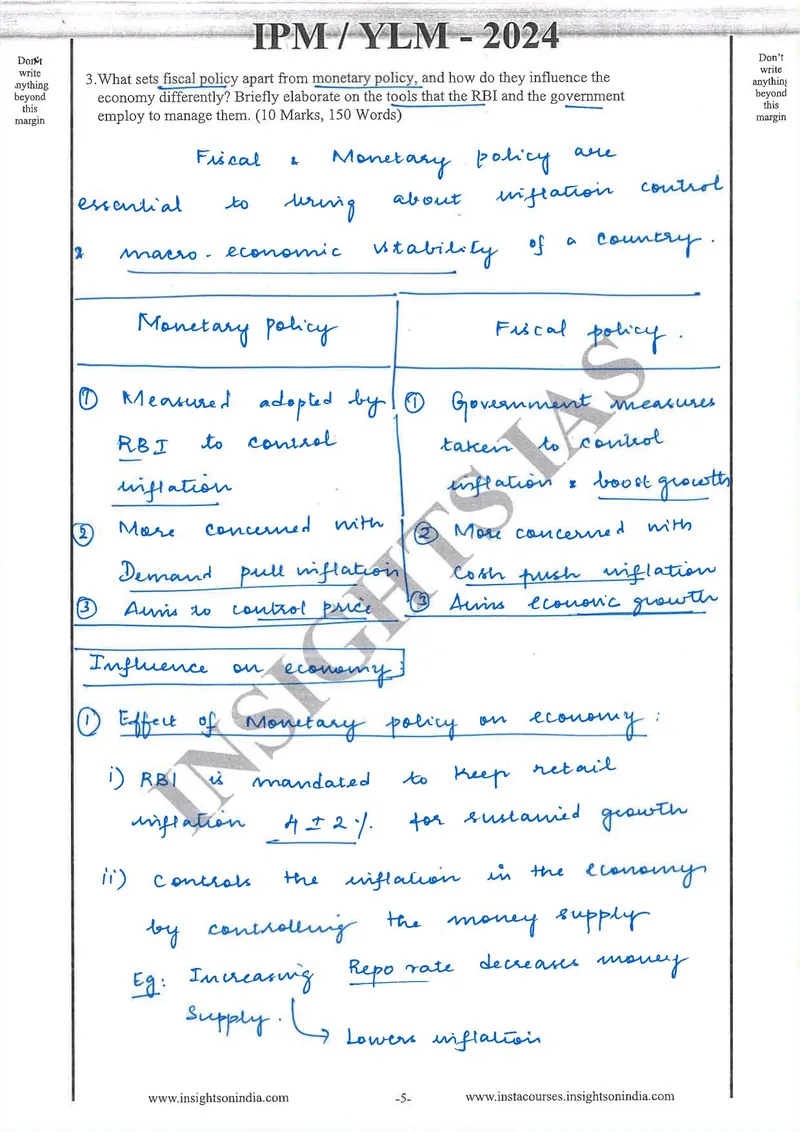 IPM / YLM - 2024
Don't
write
anything
beyond
this
margin
Don't
write
anything
beyond
this
margin
3.What sets fiscal policy apart from monetary policy, and how do they influence the
economy differently? Briefly elaborate on the tools that the RBI and the government
employ to manage them. (10 Marks, 150 Words)
Fiscal & Monetary policy are
essential to bring about inflation control
& macro-economic stability of a country.
Monetary policy
Fiscal policy.
① Measured adopted by
RBI to control
inflation
② More concerned with
Demand pull inflation
③ Aims to control price
① Government measures
taken to control
inflation & boost growth
② More concerned with
Cosh push inflation
③ Aims economic growth
Influence on economy:
① Effect of Monetary policy on economy:
i) RBI is mandated to keep retail
inflation 4 ± 2 % for sustained growth
ii) Controls the inflation in the economy
by controlling the money supply
Eg: Increasing Repo rate decreases money
supply.
→ Lowers inflation
INSIGHTS IAS
www.insightsonindia.com
-5-
www.instacourses.insightsonindia.com